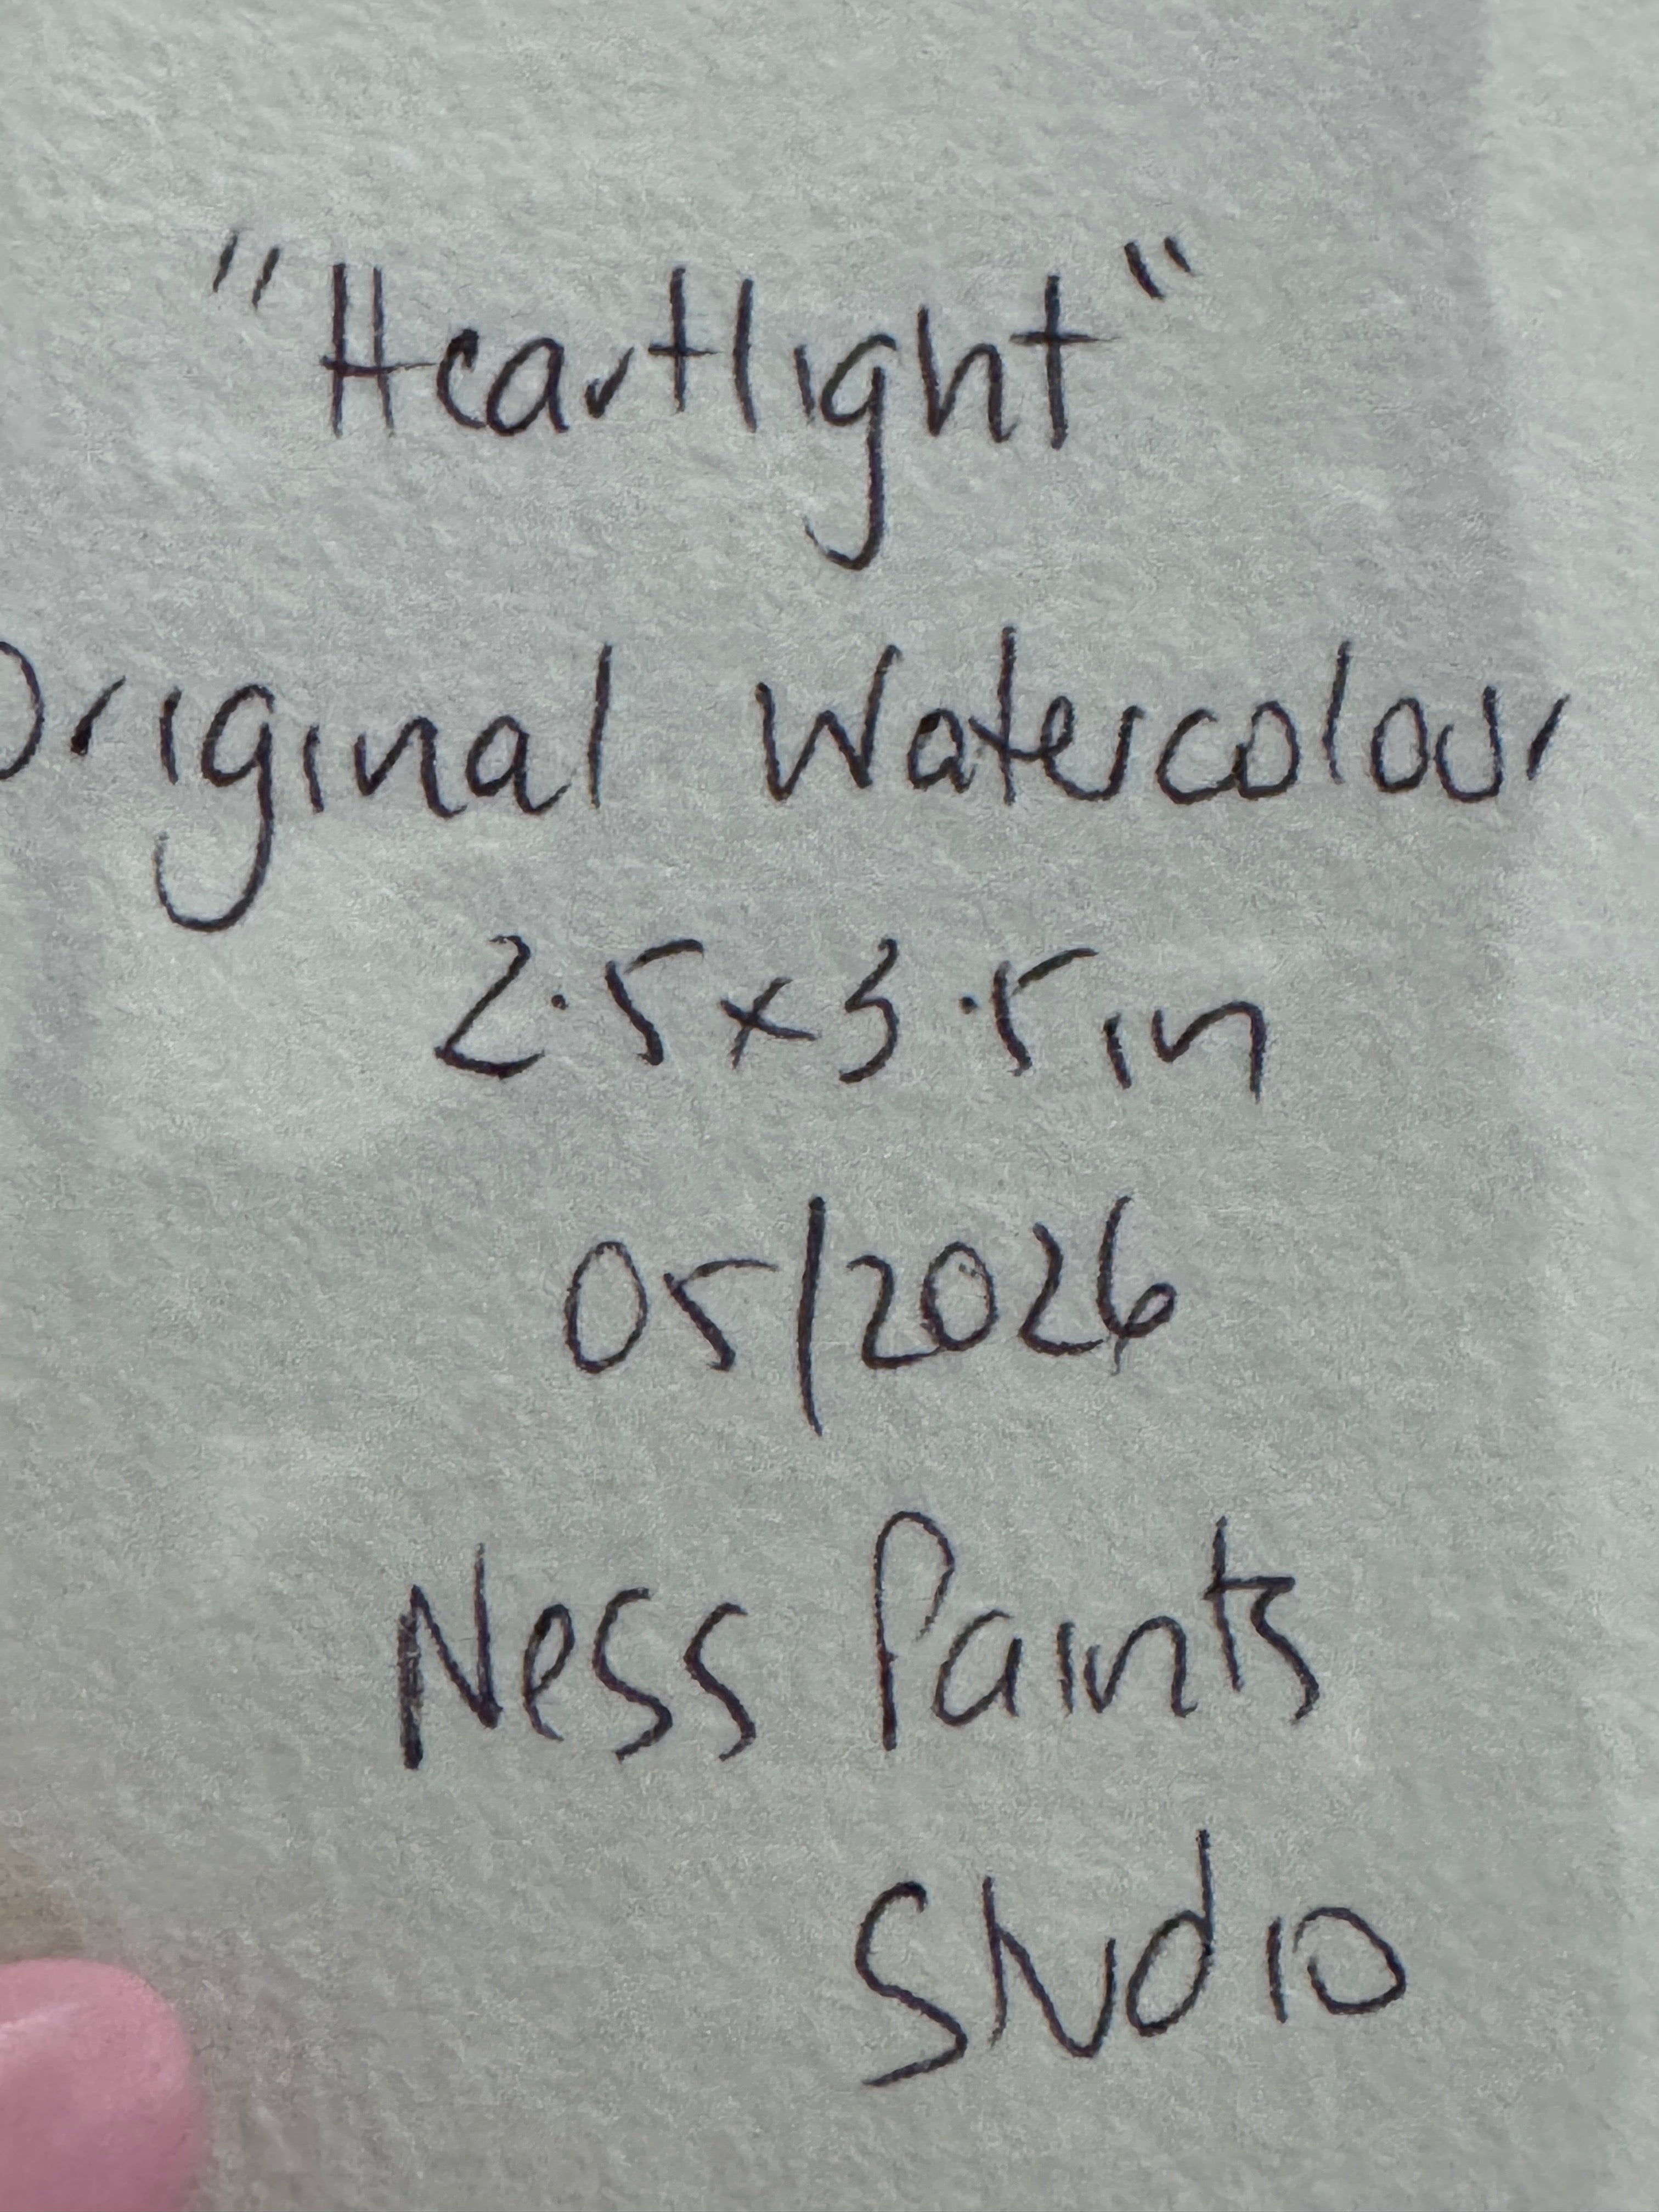 "Heartlight"
Original Watercolour
2.5x3.5in
05/2026
Ness Paints
Studio